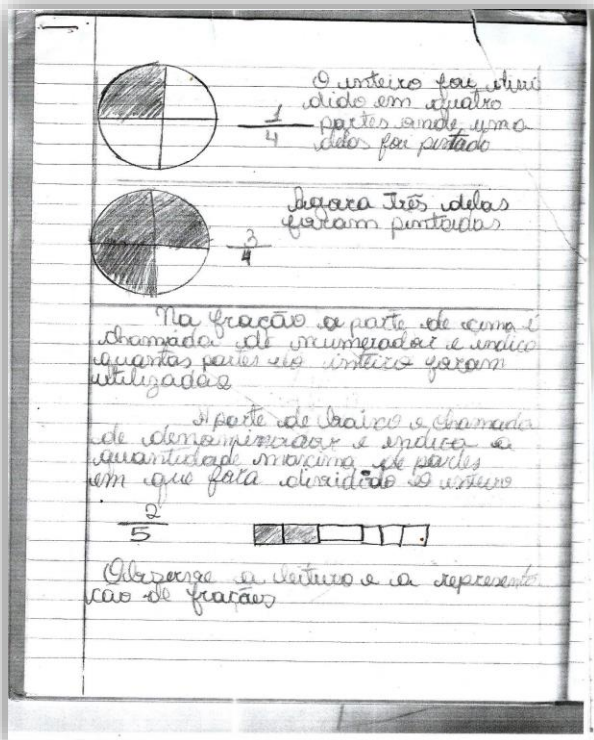 O inteiro foi divi
dido em quatro
1/4 partes onde uma
delas foi pintado
Agora Três delas
foram pintadas
3/4
Na fração a parte de cima é
chamada de numerador e indica
quantas partes do inteiro foram
utilizadas
A parte de baixo e chamada
de denominador e indica a
quantidade maxima de partes
em que fora dividido o inteiro
2/5
Observe a leitura e a representa
cão de frações